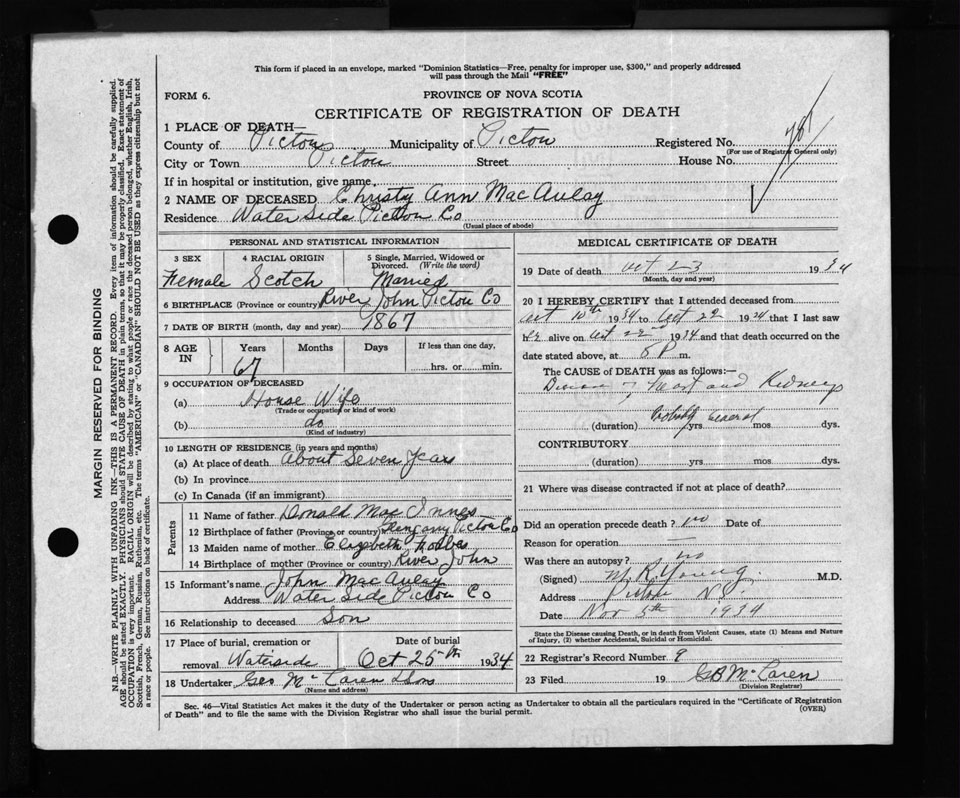 This form if placed in an envelope, marked "Dominion Statistics—Free, penalty for improper use, $300," and properly addressed
will pass through the Mail "FREE"
FORM 6.
PROVINCE OF NOVA SCOTIA
CERTIFICATE OF REGISTRATION OF DEATH
1 PLACE OF DEATH—
County of Pictou Municipality of Pictou Registered No.
(For use of Registrar General only)
City or Town Pictou Street House No.
If in hospital or institution, give name
2 NAME OF DECEASED Christy Ann MacAulay
Residence Water Side Pictou Co
(Usual place of abode)
PERSONAL AND STATISTICAL INFORMATION
3 SEX 4 RACIAL ORIGIN 5 Single, Married, Widowed or Divorced. (Write the word)
Female Scotch Married
6 BIRTHPLACE (Province or country) River John Pictou Co
7 DATE OF BIRTH (month, day and year) 1867
8 AGE IN Years Months Days If less than one day,
67 hrs. or min.
9 OCCUPATION OF DECEASED
(a) House Wife
(Trade or occupation or kind of work)
(b) do
(Kind of industry)
10 LENGTH OF RESIDENCE (in years and months)
(a) At place of death About Seven Years
(b) In province
(c) In Canada (if an immigrant)
Parents
11 Name of father Donald MacInnes
12 Birthplace of father (Province or country) Glengarry Pictou Co
13 Maiden name of mother Elizabeth Forbes
14 Birthplace of mother (Province or country) River John
15 Informant's name John MacAulay
Address Water Side Pictou Co
16 Relationship to deceased Son
17 Place of burial, cremation or Date of burial
removal Waterside Oct 25th 1934
18 Undertaker Geo McLaren & Sons
(Name and address)
MEDICAL CERTIFICATE OF DEATH
19 Date of death Oct 23 1934
(Month, day and year)
20 I HEREBY CERTIFY that I attended deceased from
Oct 10th 1934 to Oct 22 1934 that I last saw
her alive on Oct 22nd 1934 and that death occurred on the
date stated above, at 8 P m.
The CAUSE OF DEATH was as follows:—
Disease of Heart and Kidneys
(duration) Probably Several yrs mos dys.
CONTRIBUTORY
(duration) yrs mos dys.
21 Where was disease contracted if not at place of death?
Did an operation precede death? no Date of
Reason for operation —
Was there an autopsy? no
(Signed) M R Young M.D.
Address Pictou N.S.
Date Nov 5th 1934
State the Disease causing Death, or in death from Violent Causes, state (1) Means and Nature of Injury, (2) whether Accidental, Suicidal or Homicidal.
22 Registrar's Record Number 9
23 Filed 19 GB McLaren
(Division Registrar)
Sec. 46—Vital Statistics Act makes it the duty of the Undertaker or person acting as Undertaker to obtain all the particulars required in the "Certificate of Registration
of Death" and to file the same with the Division Registrar who shall issue the burial permit.
(OVER)
MARGIN RESERVED FOR BINDING
N.B.—WRITE PLAINLY WITH UNFADING INK—THIS IS A PERMANENT RECORD. Every item of information should be carefully supplied.
AGE should be stated EXACTLY. PHYSICIANS should STATE CAUSE OF DEATH in plain terms, so that it may be properly classified. Exact statement of
OCCUPATION is very important. RACIAL ORIGIN will be described by stating to what people or race the deceased person belonged, whether English, Irish,
Scottish, French, German, Russian, Ruthenian, etc. The terms "AMERICAN" or "CANADIAN" SHOULD NOT BE USED as they express citizenship but not
a race or people. See instructions on back of certificate.